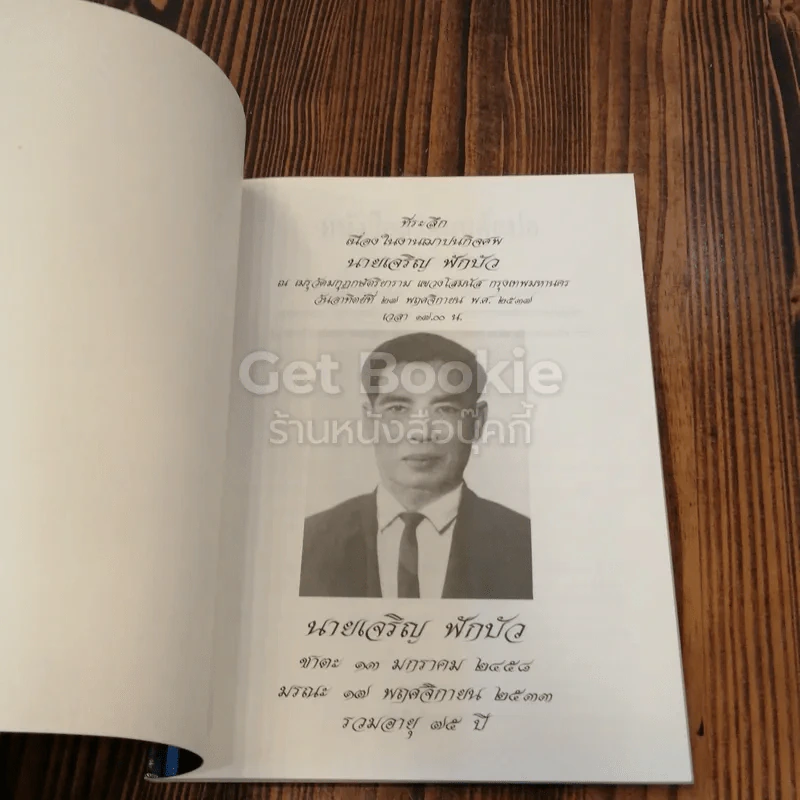 ที่ระลึก
เนื่องในงานฌาปนกิจศพ
นายเจริญ ฟักบัว
ณ เมรุวัดมกุฏกษัตริยาราม แขวงโสมนัส กรุงเทพมหานคร
วันอาทิตย์ที่ ๒๗ พฤศจิกายน พ.ศ. ๒๕๓๗
เวลา ๑๗.๐๐ น.
Get Bookie
ร้านหนังสือบุ๊คกี้
นายเจริญ ฟักบัว
ชาตะ ๑๓ มกราคม ๒๔๕๘
มรณะ ๑๗ พฤศจิกายน ๒๕๓๓
รวมอายุ ๗๕ ปี